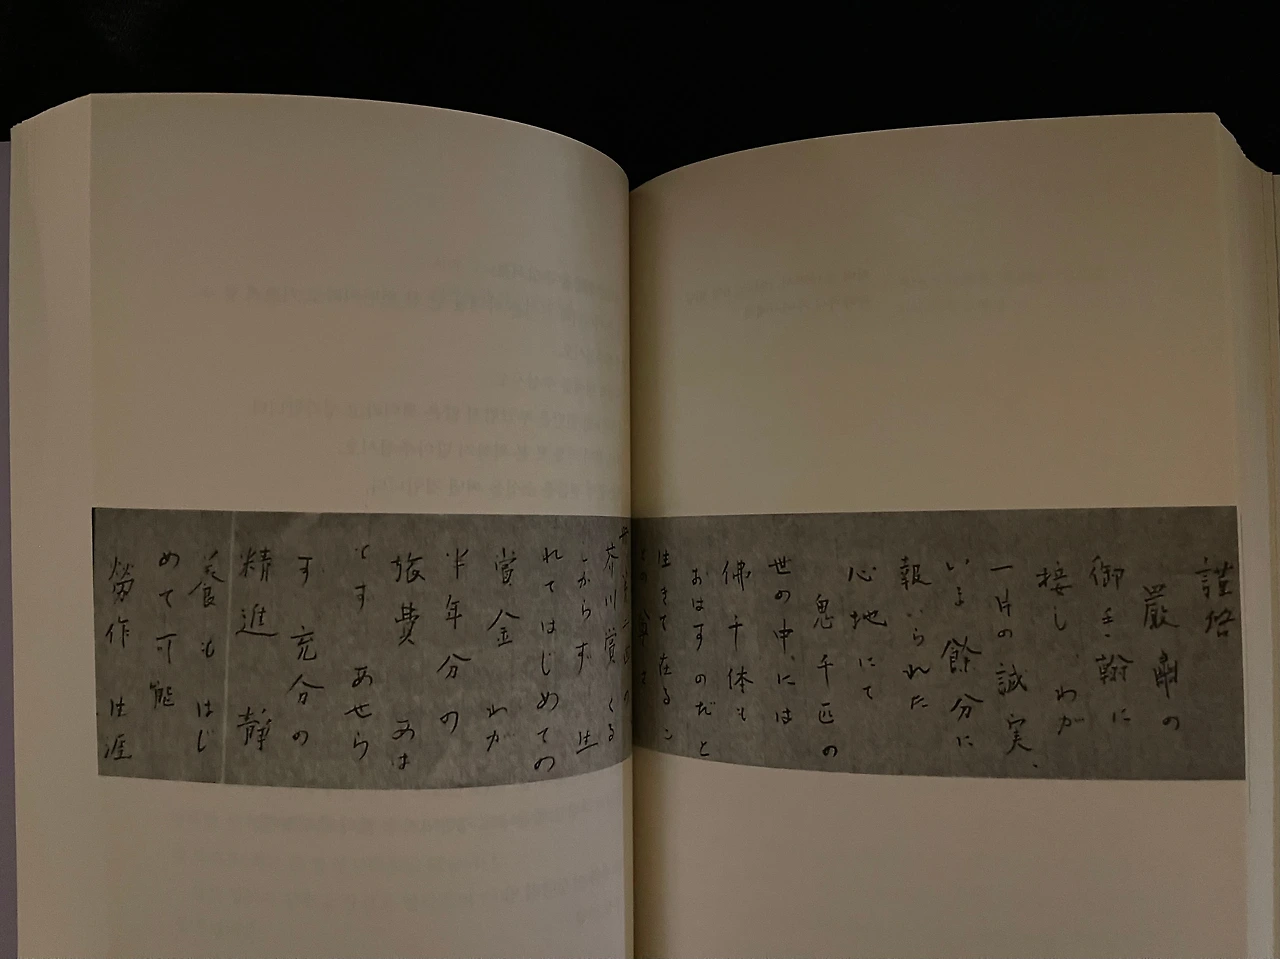 謹啓
嚴肅の
御手翰に
接し、わが
一片の誠実、
いま餘分に
報いられた
心地にて
鬼千匹の
世の中には
佛千体も
おはすのだと
生きて在るこ
芥川賞 くる
しからず 生
れてはじめての
賞金 わが
半年分の
旅費 あは
てず あせら
ず 充分の
精進 静
養も はじ
めて可能
勞作 生涯